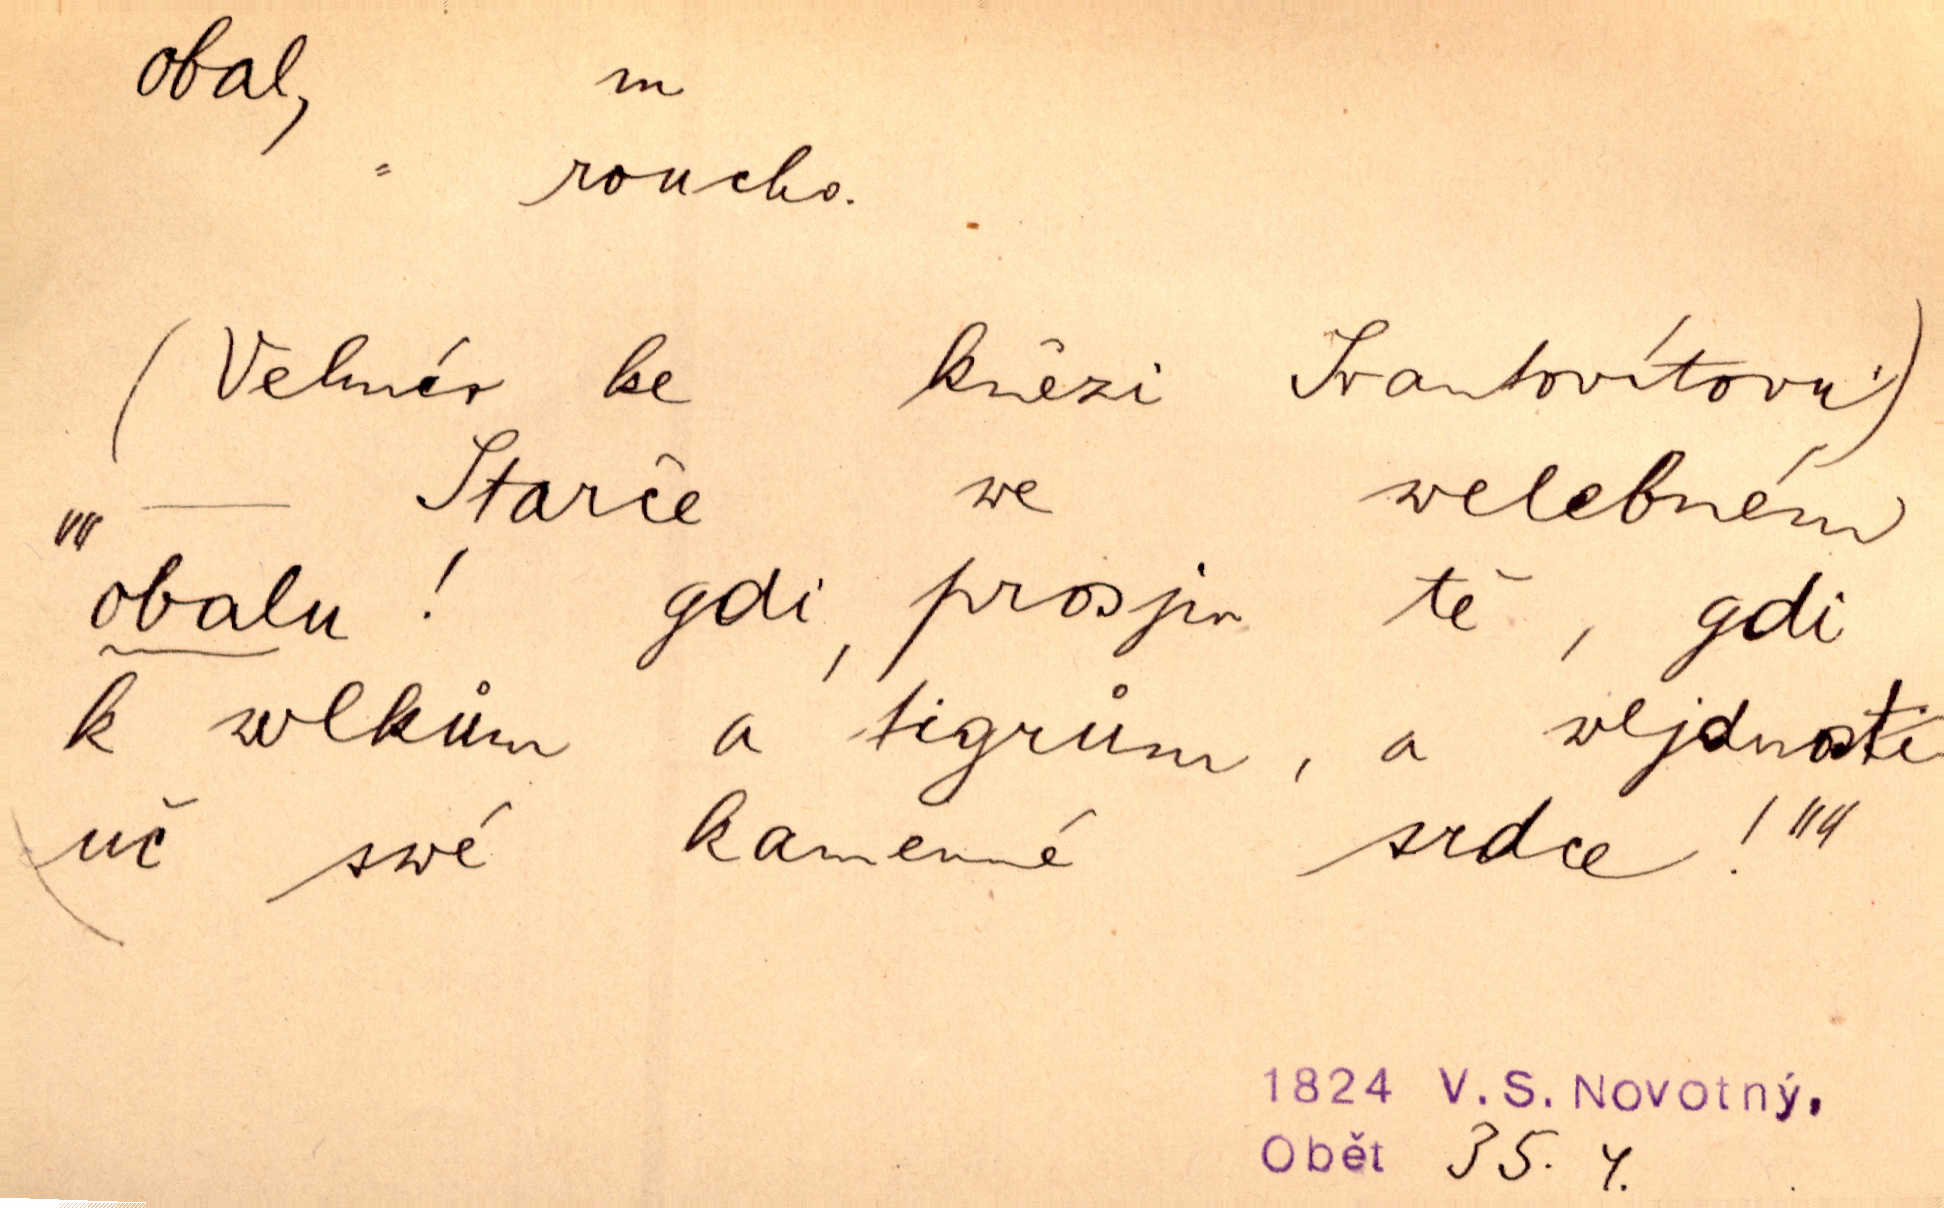 obal, m
" roucho.
( ke knězi Svantovítovu:)
"" — Starče we welebném
obalu! gdi, prosjm tě, gdi
k wlkům a tigrům, a wljdnosti
uč swé kamenné srdce!""
1824 V. S. Novotný,
Obět 35. y.